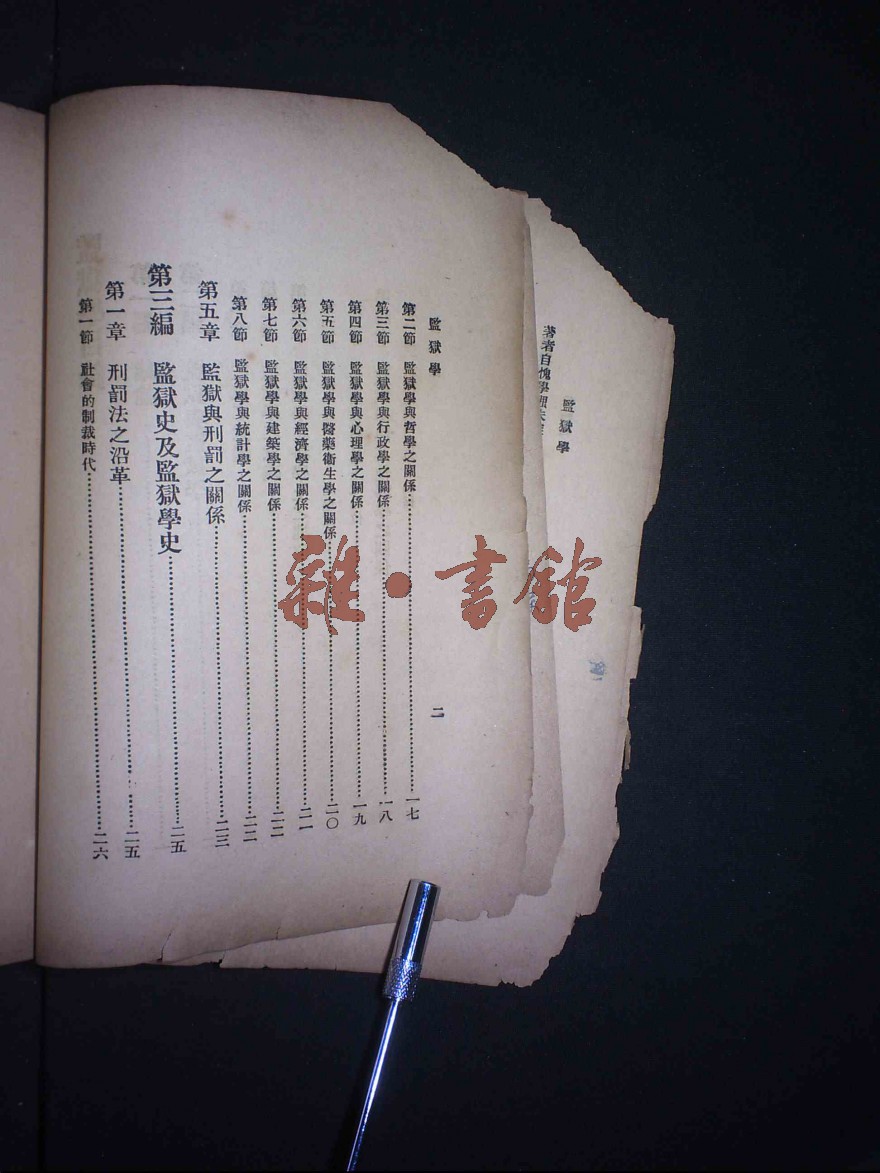 監獄學
二
第二節 監獄學與哲學之關係……一七
第三節 監獄學與行政學之關係……一八
第四節 監獄學與心理學之關係……一九
第五節 監獄學與醫藥衛生學之關係……二〇
第六節 監獄學與經濟學之關係……二一
第七節 監獄學與建築學之關係……二二
第八節 監獄學與統計學之關係……二二
第五章 監獄與刑罰之關係……二三
第三編 監獄史及監獄學史……二五
第一章 刑罰法之沿革……二五
第一節 社會的制裁時代……二六
監獄學
著者自愧學
雜·書館